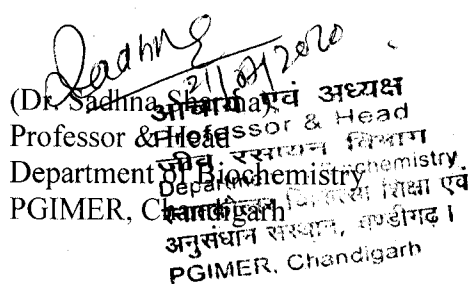 Sadhna
21/07/2020
(Dr. Sadhna Sharma)
Professor & Head
Department of Biochemistry
PGIMER, Chandigarh
आचार्य एवं अध्यक्ष
Professor & Head
जीव रसायन विभाग
Department of Biochemistry
स्नातकोत्तर चिकित्सा शिक्षा एवं
अनुसंधान संस्थान, चण्डीगढ़ ।
PGIMER, Chandigarh